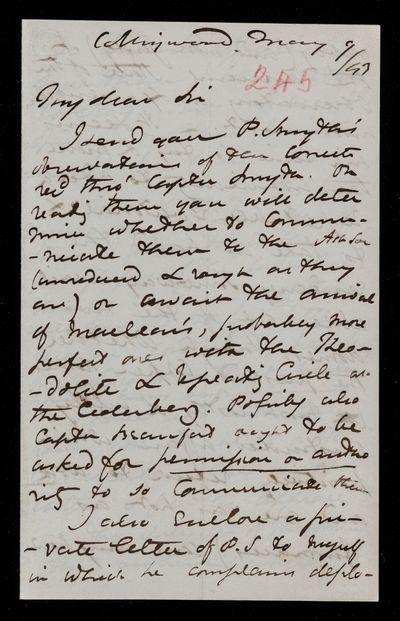 Collingwood. May 9/43
245
My dear Sir
I send you P. Smyth's
observations of the Comet
recd thro' Captn Smyth. On
readg them you will deter
mine whether to Commu-
-nicate them to the Ast Soc
(unreduced & rough as they
are) or await the arrival
of Maclear's, probably more
perfect ones with the Theo-
-dolite & Repeatg Circle at
the Cederberg. Possibly also
Captn Beaufort ought to be
asked for permission or autho
rity to so Communicate them
I also Enclose a pri-
-vate letter of P.S. to myself
in which he complains deplo-